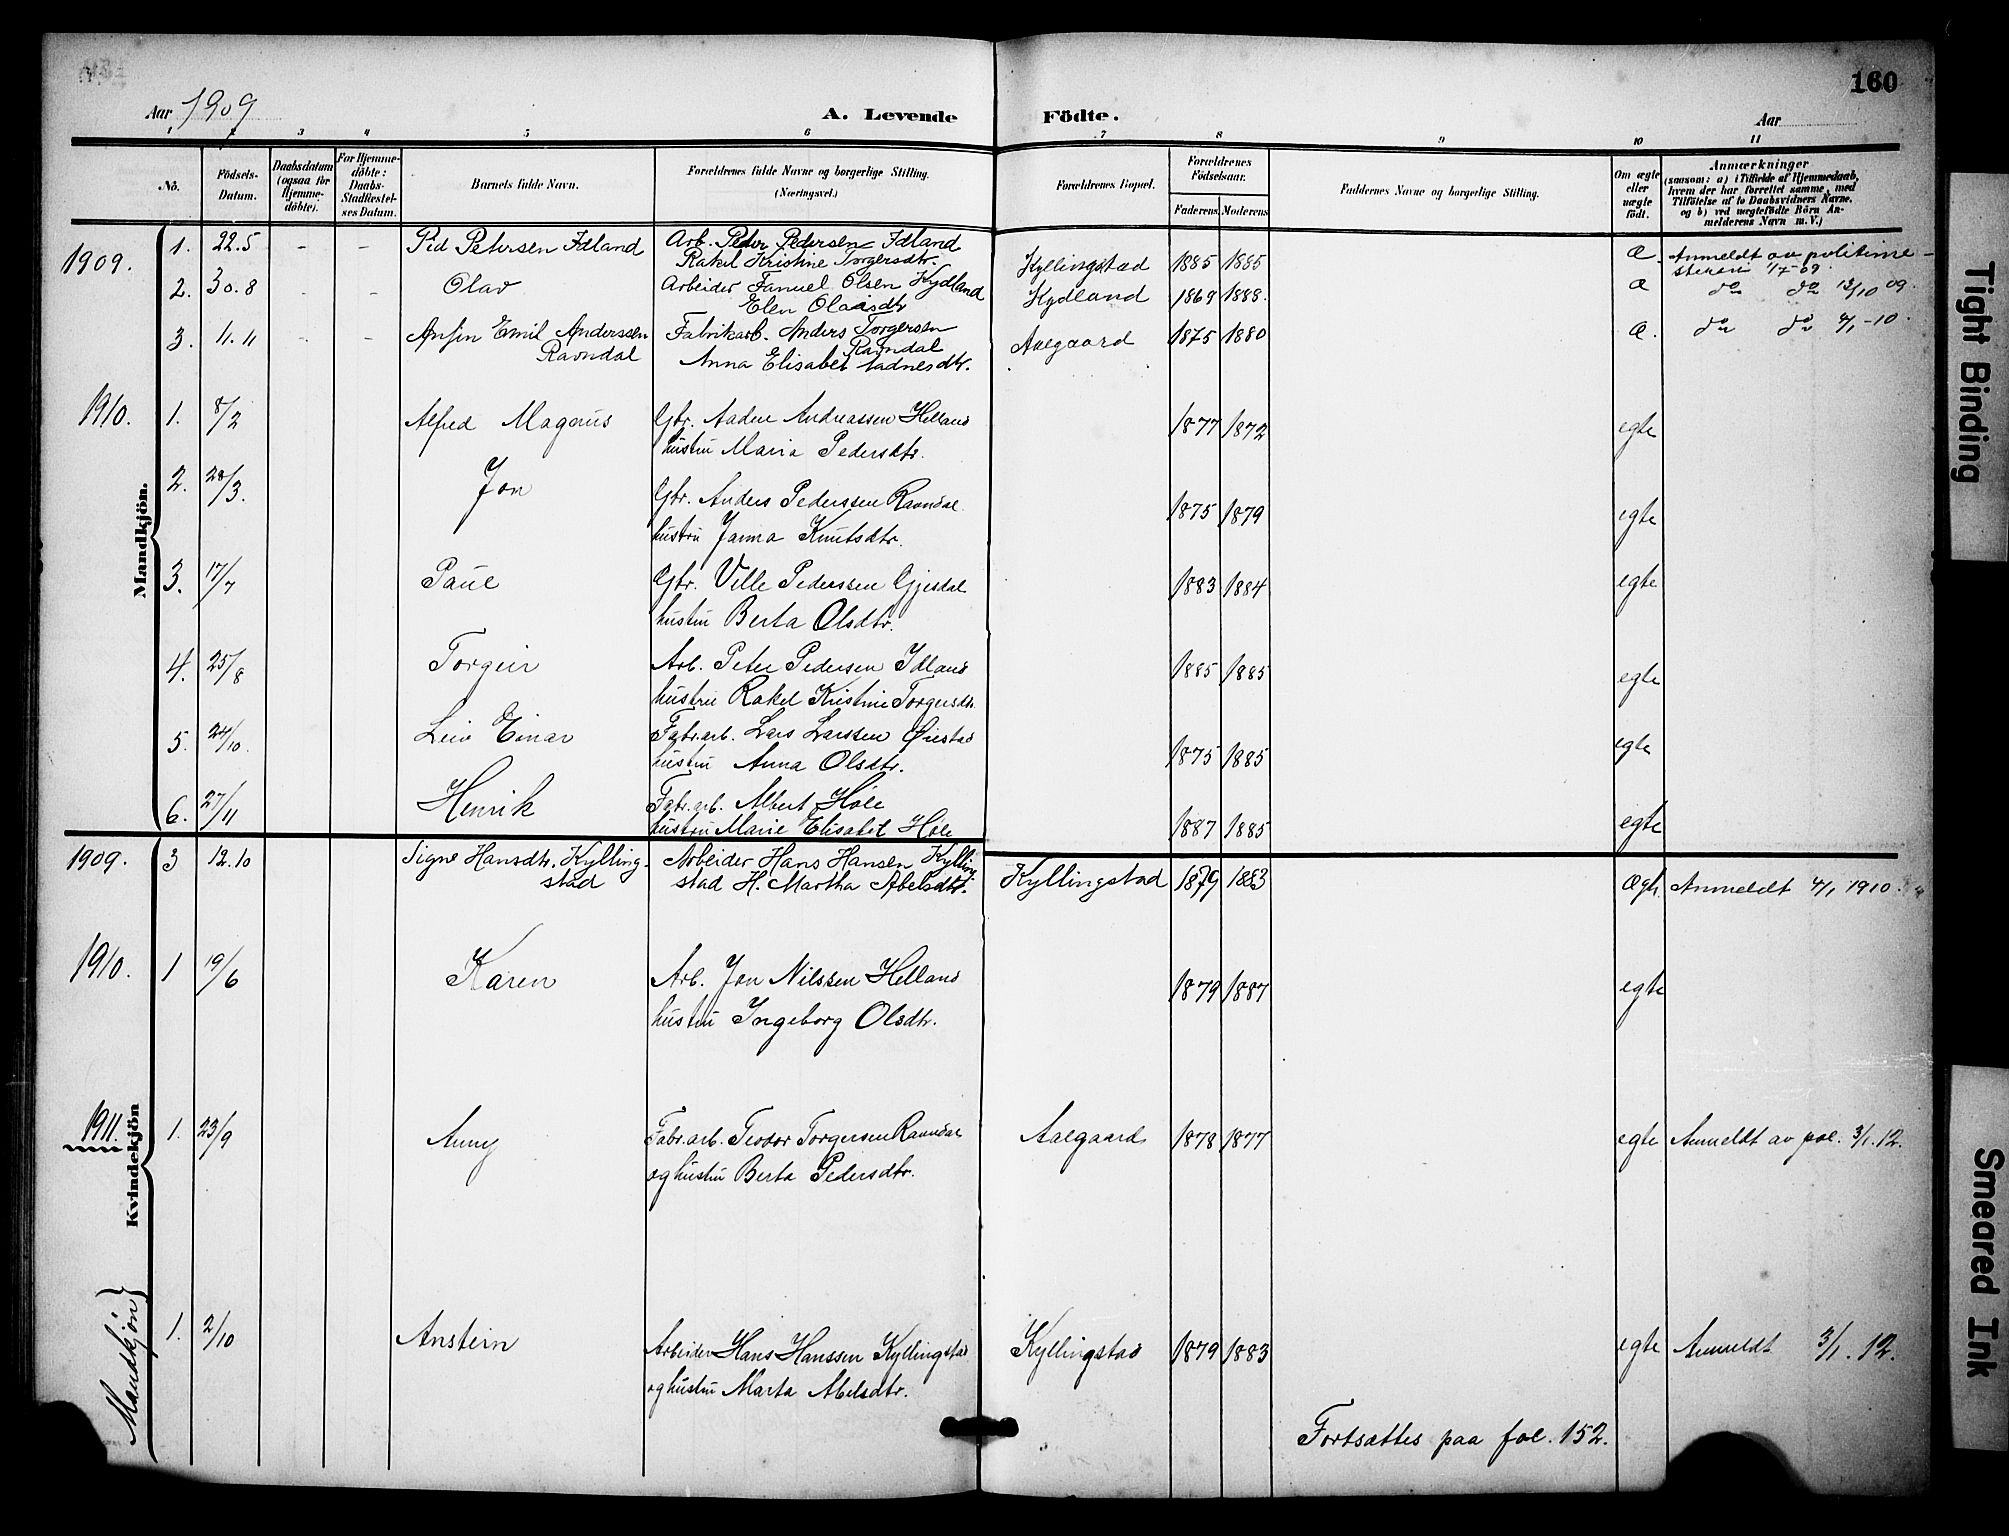 160
Aar 1909
A. Levende Födte.
Aar
1 2 3 4 5 6 7 8 9 10 11
No.
Födsels-
Datum.
Daabsdatum
(ogsaa for
Hjemme-
döbte).
For Hjemme-
döbte:
Daabs-
Stadfæstel-
ses Datum.
Barnets fulde Navn.
Forældrenes fulde Navne og borgerlige Stilling.
(Næringsvei.)
Forældrenes Bopæl.
Forældrenes
Födselsaar.
Faderens. Moderens.
Faddernes Navne og borgerlige Stilling.
Om ægte
eller
uægte
födt.
Anmærkninger
(saasom: a) i Tilfælde af Hjemmedaab,
hvem der har forrettet samme, med
Tilföielse af to Daabsvidners Navne,
og b) ved uægtefödte Börn An-
melderens Navn m. V.)
Mandkjön.
1909. 1. 22.5 - - Peder Petersen Idland Arb. Peder Pedersen Idland
Rakel Kristine Torgersdtr. Kyllingstad 1885 1885 Æ. Anmeldt av politime-
steren 1/7-09.
2. 30.8 - - Olav Arbeider Fanuel Olsen Kydland
Elen Olaisdtr Kydland 1869 1888. Æ do do 12/10 09.
3. 11.11 - - Emil Anderssen
Ravndal Fabrikarb. Anders Torgersen
Ravndal
Anna Elisabet Aadnesdtr. Aalgaard 1875 1880 Æ. do do 4/1-10.
1910. 1. 8/2 Alfred Magnus Gbr. Aadne Andreassen Helland
hustru Maria Pedersdtr. 1877 1872 egte
2. 28/3. Jon Gbr. Anders Pederssen Ravndal
hustru Janna Knutsdtr. 1875 1879 egte
3. 17/7 Paul Gbr. Velle Pederssen Gjesdal
hustru Berta Olsdtr. 1883 1884 egte
4. 25/8 Torgeir Arb. Peter Pedersen Idland
hustru Rakel Kristine Torgersdtr. 1885 1885 egte
5. 24/10. Leiv Einar Fabr.arb. Lars Larssen Øiestad
hustru Anna Olsdtr. 1875 1885 egte
6. 27/11 Henrik Fabr.arb. Albert Høle
hustru Marie Elisabet Høle 1887 1885 egte
Kvindekjön
1909. 3 12.10 Signe Hansdtr. Kylling-
stad Arbeider Hans Hansen Kylling-
stad H. Martha Abelsdtr. Kyllingstad 1879 1883 Ægt. Anmeldt 4/1 1910.
1910. 1 19/6 Karen Arb. Jon Nilssen Helland
hustru Ingeborg Olsdtr. 1879 1887 egte
1911. 1. 23/9 Anny Fabr.arb. Teodor Torgersen Ravndal
og hustru Berta Pedersdtr. Aalgaard 1878 1877 egte Anmeldt av pol. 3/1.12.
Mandkjøn
1. 2/10 Anstein Arbeider Hans Hanssen Kyllingstad
og hustru Marta Abelsdtr. Kyllingstad 1879 1883 egte Anmeldt 3/1.12.
Fortsættes paa fol. 152.
Tight Binding
Smeared Ink